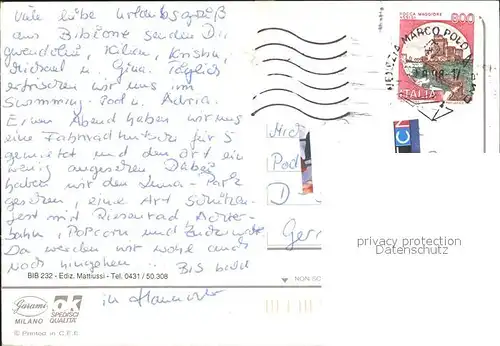 Viele liebe Urlaubsgrüße
aus Bibione senden Dir
Gwendolin, Kilian, Kristin,
Michael u. Gina. Täglich
erfrischen wir uns im
Swimming-Pool u. Adria.
Einen Abend haben wir uns
eine Fahrradkutsche für 5
gemietet und den Ort ein
wenig angesehen. Dabei
haben wir den Luna-Park
gesehen, eine Art Schützen-
fest mit Riesenrad, Achter-
bahn, Popcorn und Zuckerwatte
Da werden wir wohl auch
noch hingehen. Bis bald
in Hannover
BIB 232 - Ediz. Mattiussi - Tel. 0431 / 50.308
Garami
MILANO
OK
SPEDISCI
QUALITA'
© Printed in C.E.E.
ROCCA MAGGIORE
ASSISI
800
ITALIA
VENEZIA MARCO POLO
Ger
NON SC
privacy protection
Datenschutz